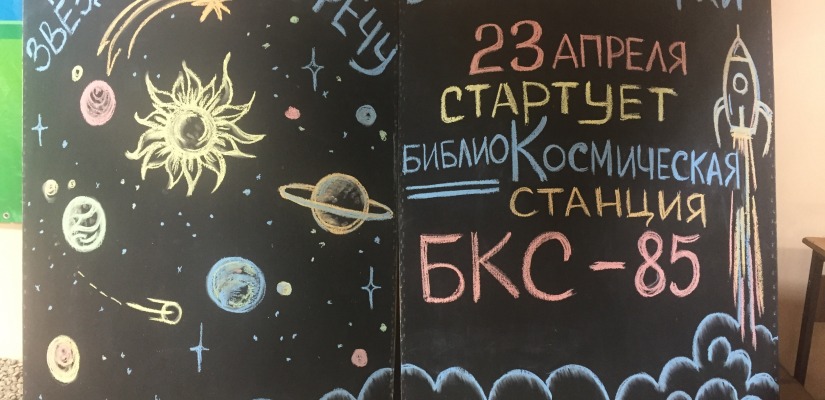 23 АПРЕЛЯ
СТАРТУЕТ
БИБЛИОКОСМИЧЕСКАЯ
СТАНЦИЯ
БКС-85